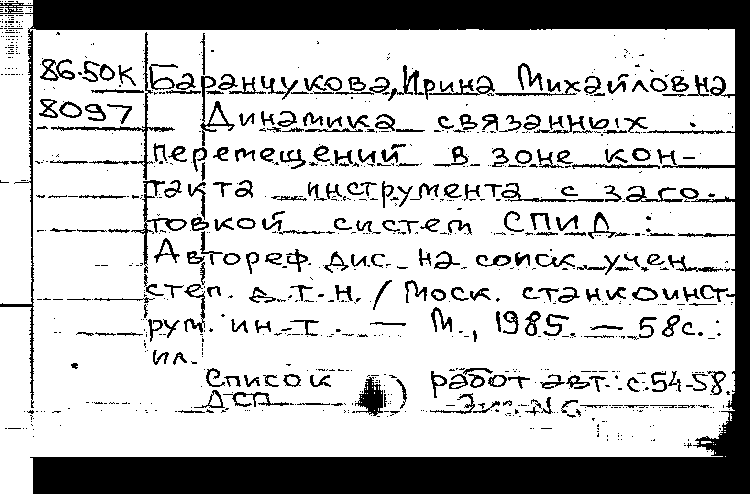 86-50к Баранчукова, Ирина Михайловна
8097 Динамика связанных
перемещений в зоне кон-
такта инструмента с заго-
товкой систем СПИД :
Автореф дис на соиск учен
степ. д.т.н. / Моск. станкоинст-
рум. ин-т. — М., 1985. — 58с. :
ил.
Список работ авт.: с.54-58.
ДСП